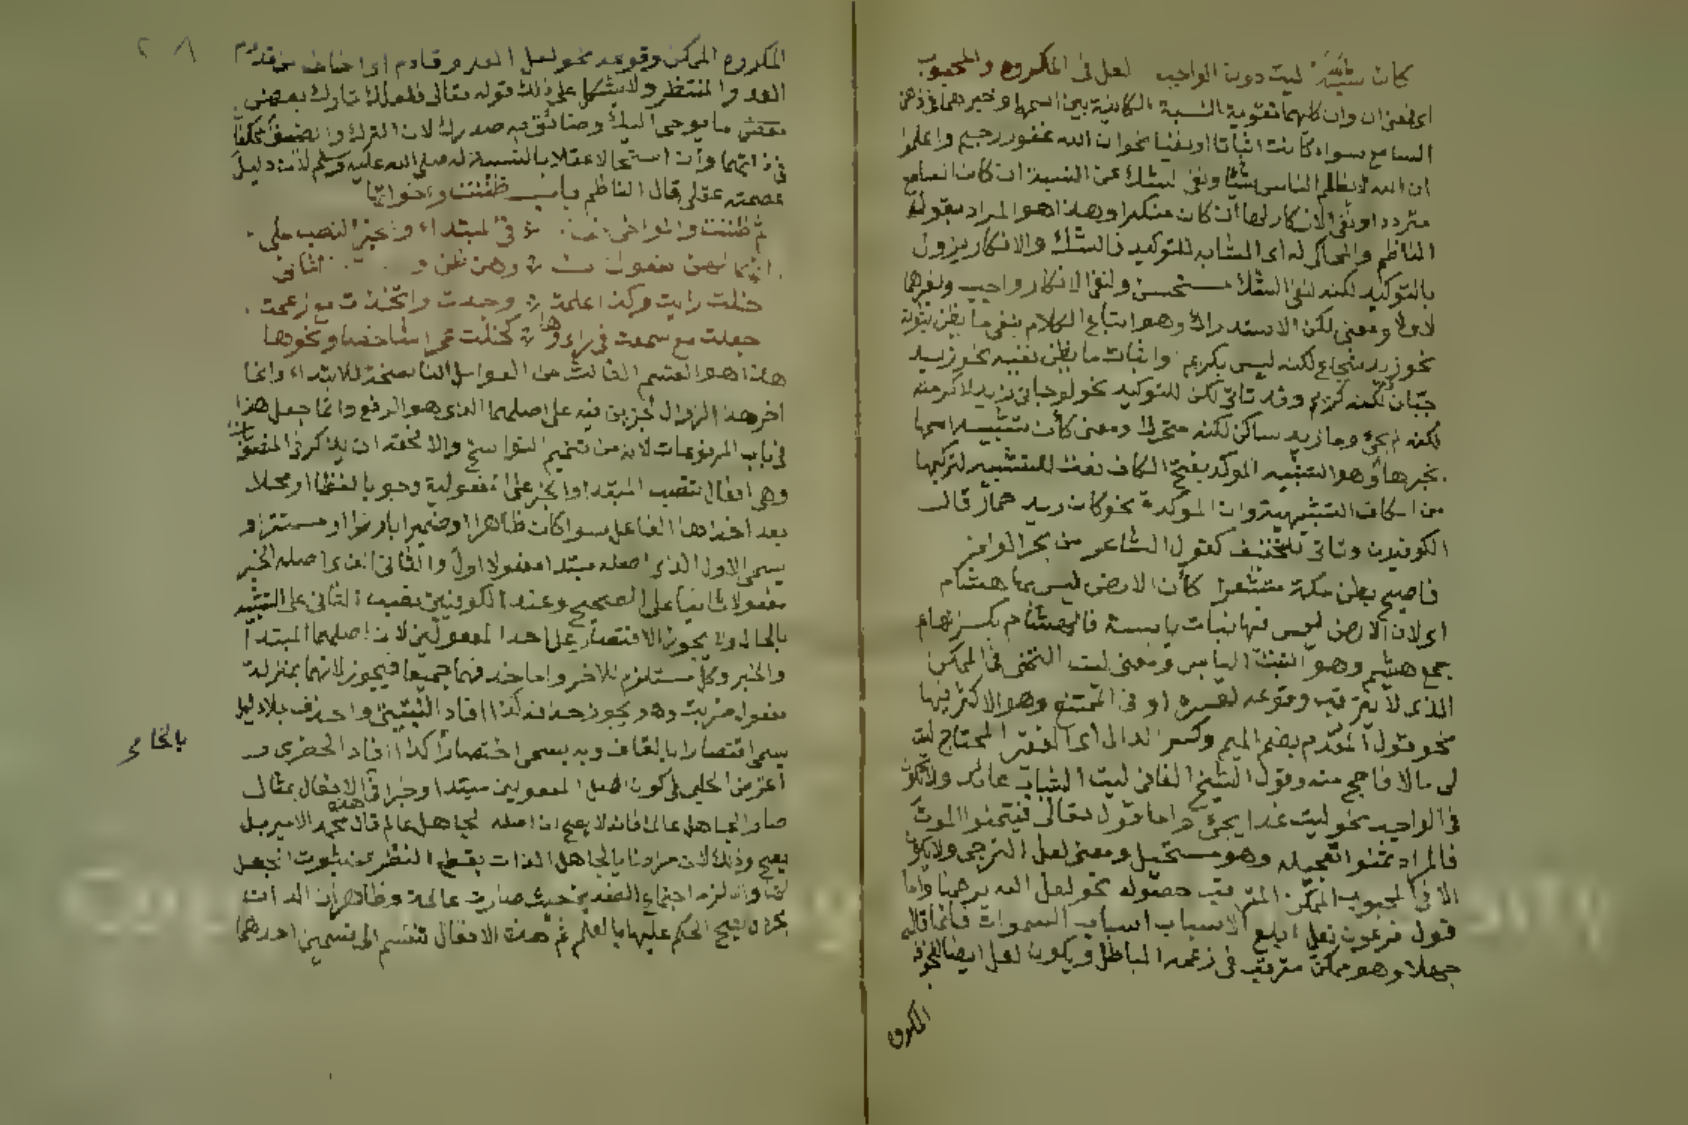 كان شبه ليت دون الواجب لعل فى المكروه والمحبوب
اى فمعنى ان وان كلتيهما تقوية النسبة الكائنة بين اسمها وخبرهما فى ذهن
السامع سواء كانت اثباتا او نفيا نحو ان الله غفور رحيم واعلموا
ان الله لا يظلم الناس شيئا ونفى الشك عن النسبة ان كان السامع
مترددا ونفى الانكار لها ان كان منكرا وهذا هو المراد بقول
الناظم والمحاكى له اى المشابه للتوكيد فالشك والانكار يزول
بالتوكيد لكنه لنفى الشك مستحسن ولنفى الانكار واجب ولغيرهما
لا ولا ومعنى لكن الاستدراك وهو اتباع الكلام بنفى ما يظن ثبوته
نحو زيد شجاع لكنه ليس بكريم واثبات ما يظن نفيه نحو زيد
جبان لكنه كريم وقد تاتى لكن للتوكيد نحو لو جاءنى زيد لاكرمته
لكنه لم يجئ وما زيد ساكن لكنه متحرك ومعنى كأن تشبيه اسمها
بخبرها وهو التشبيه الموكد بفتح الكاف نعت للتشبيه لتركبها
من الكاف التشبيهية وان الموكدة نحو كان زيد حمار قال
الكوفيون وتاتى للتحقيق كقول الشاعر من بحر الوافر
فاصبح بطن مكة مقشعرا كأن الارض ليس بها هشام
اى لان الارض ليس فيها نبات يابسة فالهشام بكسر الهاء
جمع هشيم وهو النبت اليابس ومعنى ليت التمنى فى الممكن
الذى لا يترقب وقوعه لعسره او فى الممتنع وهو الاكثر فيها
نحو قول المقدم بضم الميم وكسر الدال اى الفقير المحتاج ليت
لى مالا فاحج منه وقول الشيخ الفانى ليت الشباب عائد ولا تكون
فى الواجب نحو ليت غدا يجئ واما قول تعالى فتمنوا الموت
فالمراد تمنوا تعجيله وهو مستحيل ومعنى لعل الترجى ولا يكون
الا فى المحبوب الممكن المترقب حصوله نحو لعل الله يرحمنا واما
قول فرعون لعلى ابلغ الاسباب اسباب السموات فانما قاله
جهلا وهو ممكن مترقب فى زعمه الباطل ويكون لعل ايضا للخوف
المكروه
المكروه الممكن وقوعه نحو لعل العدو قادم اى اخاف من قدوم
العدو المنتظر ولا يشكل على ذلك قوله تعالى فلعلك تارك بعض
ما يوحى اليك وضائق به صدرك لان الترك والضيق ممكنا
فى ذاتهما وان استحالا عقلا بالنسبة له صلى الله عليه وسلم لان دليل
عصمته عقلى قال الناظم باب ظننت واخواتها
ثم ظننت فى المبتداء وخبر النصب على
خلت رايت وكذا علمت وجدت واتخذت مع زعمت
جعلت مع سمعت
هذا هو القسم الثالث من العوامل الناسخة للابتداء وانما
اخر هذا الزوال الجزئين فيه على اصلهما الذى هو الرفع وانما جعل هذا
فى باب المرفوعات لانه من تتميم النواسخ والا فحقه ان يذكر فى المنصوبات
وهى افعال تنصب المبتدا والخبر على المفعولية وجوبا لفظا او محلا
بعد اخذها الفاعل سواء كان ظاهرا او ضميرا بارزا او مستترا و
يسمى الاول الذى اصله مبتدا مفعولا اول والثانى الذى اصله الخبر
مفعولا ثانيا على الصحيح وعند الكوفيين نصب الثانى على التشبيه
بالحال ولا يجوز الاقتصار على احد المفعولين لان اصلهما المبتدا
والخبر وكل مستلزم للاخر واما حذفهما جميعا فيجوز لانهما بمنزلة
مفعول ضربت وهو يجوز حذفه كذا افاد النبتيتى والحذف بلا دليل
يسمى اقتصارا بالقاف وبه يسمى اختصارا كذا افاد الحضرى و
اعترض الحلبى فى كون اصل المفعولين مبتدا وخبرا فى هذه الافعال بمثال
صار الجاهل عالما فانه لا يصح ان اصله الجاهل عالم قال محمد الامير بل
يصح وذلك لان مرادنا بالجاهل الذات بقطع النظر عن ثبوت الجهل
لها والا لزم اجتماع الضدين حيث صارت عالمة وظاهر ان الذات
يصح الحكم عليها بالعلم ثم هذه الافعال تنقسم الى قسمين احدهما
بالخا
٢٨